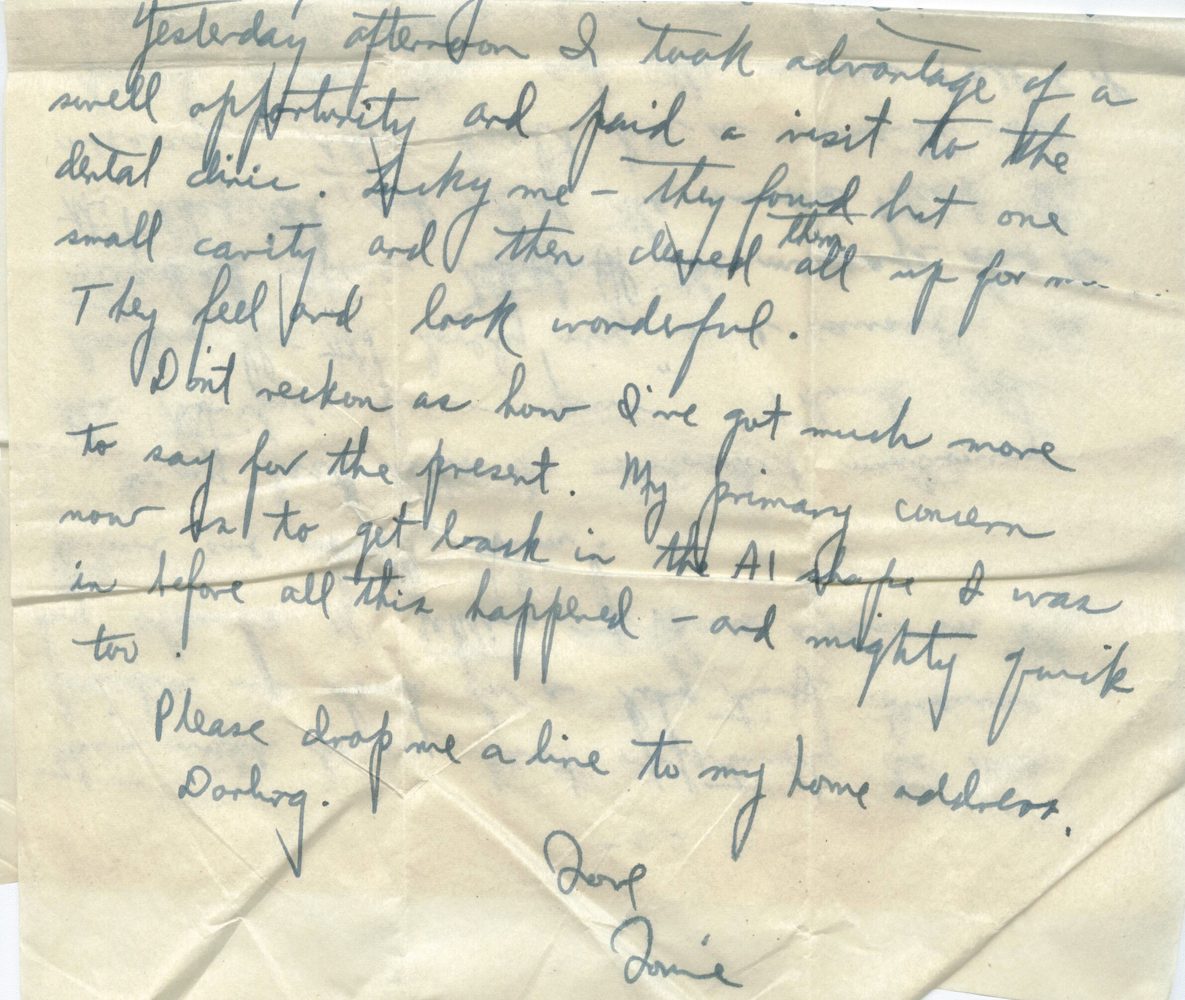 Yesterday afternoon I took advantage of a
swell opportunity and paid a visit to the
dental clinic. Lucky me – they found but one
small cavity and then cleaned them all up for me
They feel and look wonderful.
Don't reckon as how I've got much more
to say for the present. My primary concern
now is to get back in the A1 shape I was
in before all this happened – and mighty quick
too.
Please drop me a line to my home address,
Darling.
Love